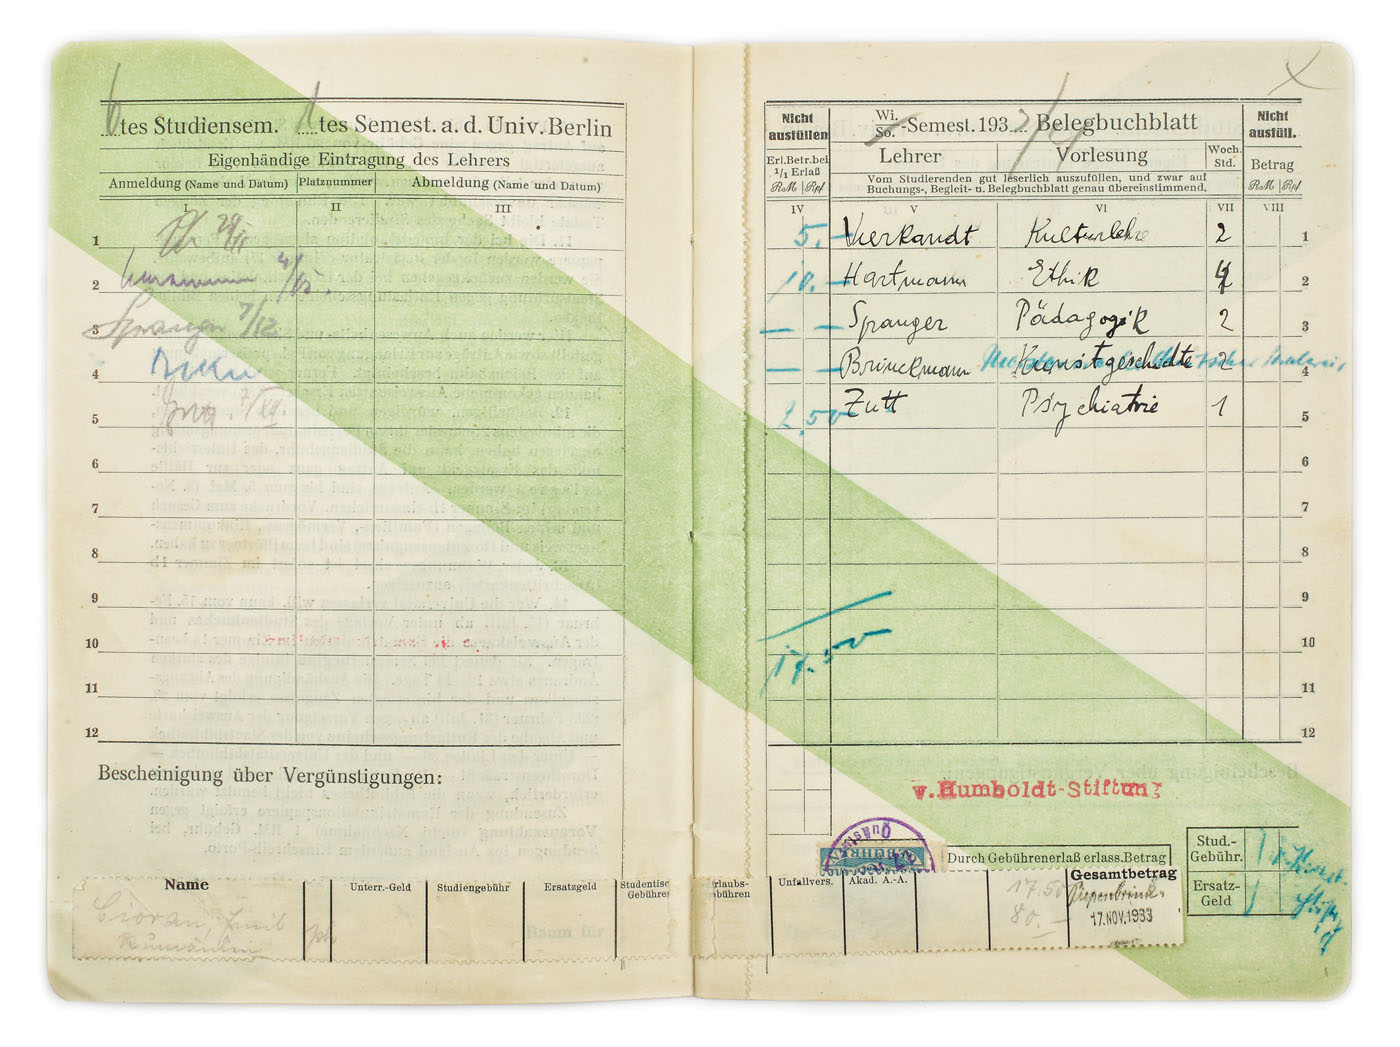 6tes Studiensem. 1tes Semest. a. d. Univ. Berlin
Eigenhändige Eintragung des Lehrers
Anmeldung (Name und Datum) Platznummer Abmeldung (Name und Datum)
I II III
1 29/11
2 4/12.
3 Spranger 7/12
4
5 Zutt 7/XII.
6
7
8
9
10
11
12
Bescheinigung über Vergünstigungen:
Name Unterr.-Geld Studiengebühr Ersatzgeld Studentische Gebühren
Cioran, Emil phil
Rumänien
Nicht ausfüllen
Wi. So. -Semest. 193 3/4 Belegbuchblatt
Nicht ausfüll.
Erl. Betr. bei 1/1 Erlaß
RM Rpf
Lehrer Vorlesung Woch. Std.
Betrag
RM Rpf
Vom Studierenden gut leserlich auszufüllen, und zwar auf
Buchungs-, Begleit- u. Belegbuchblatt genau übereinstimmend.
IV V VI VII VIII
5.- Vierkandt Kulturlehre 2 1
10.- Hartmann Ethik 4 2
— — Spranger Pädagogik 2 3
— — Brinckmann Kunstgeschichte 2 4
2,50 Zutt Psychiatrie 1 5
6
7
8
9
10
17.50
11
12
v. Humboldt-Stiftung
Quästur
GEBÜHR
Durch Gebührenerlaß erlass. Betrag
Stud.-Gebühr.
Ersatz-Geld
Unfallvers. Akad. A.-A. Gesamtbetrag
17.50
80.-
Piepenbrink
17. NOV. 1933